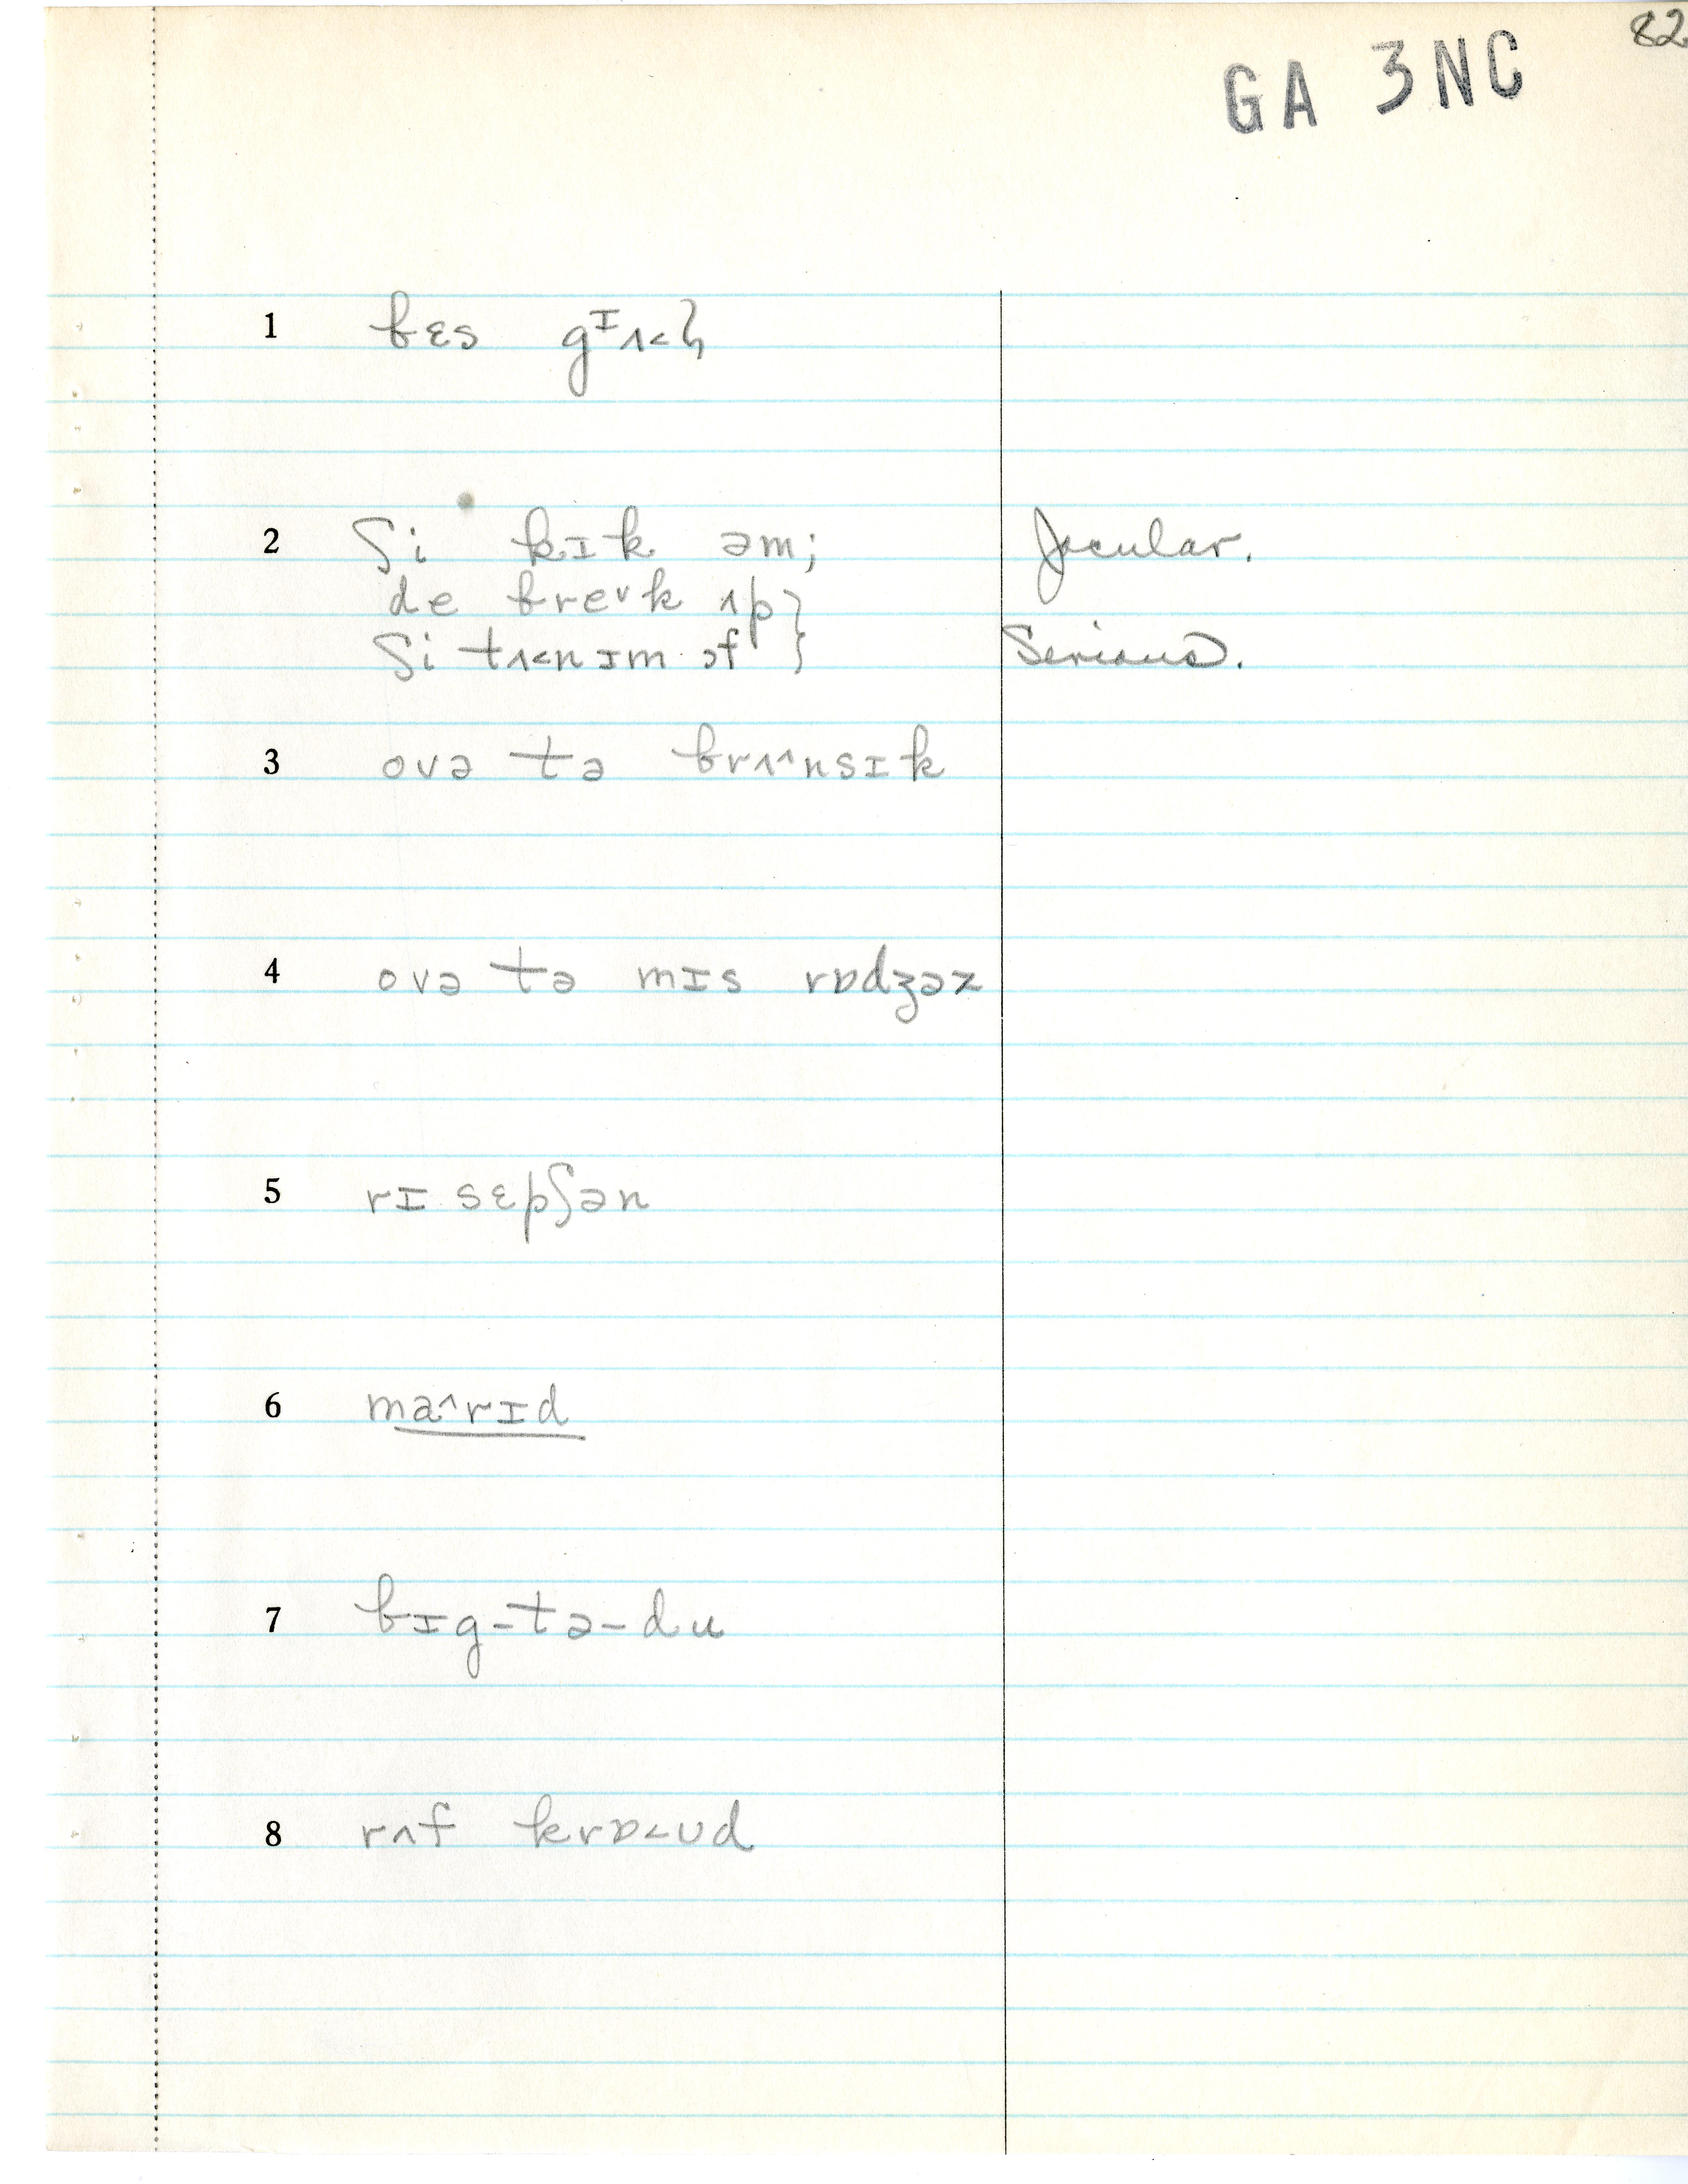 82
GA 3NC
1 bɛs gᶦʌ˂ɫ
2 ʃi kɪk əm; Jocular.
de breᵛk ʌp}
ʃi tʌ˂n ɪm ɔf} Serious.
3 ovə tə brʌ^nsɪk
4 ovə tə mɪs rɒdʒəz
5 rɪ sɛpʃən
6 ma^rɪd
7 bɪg-tə-du
8 rʌf krɒ˂ʊd